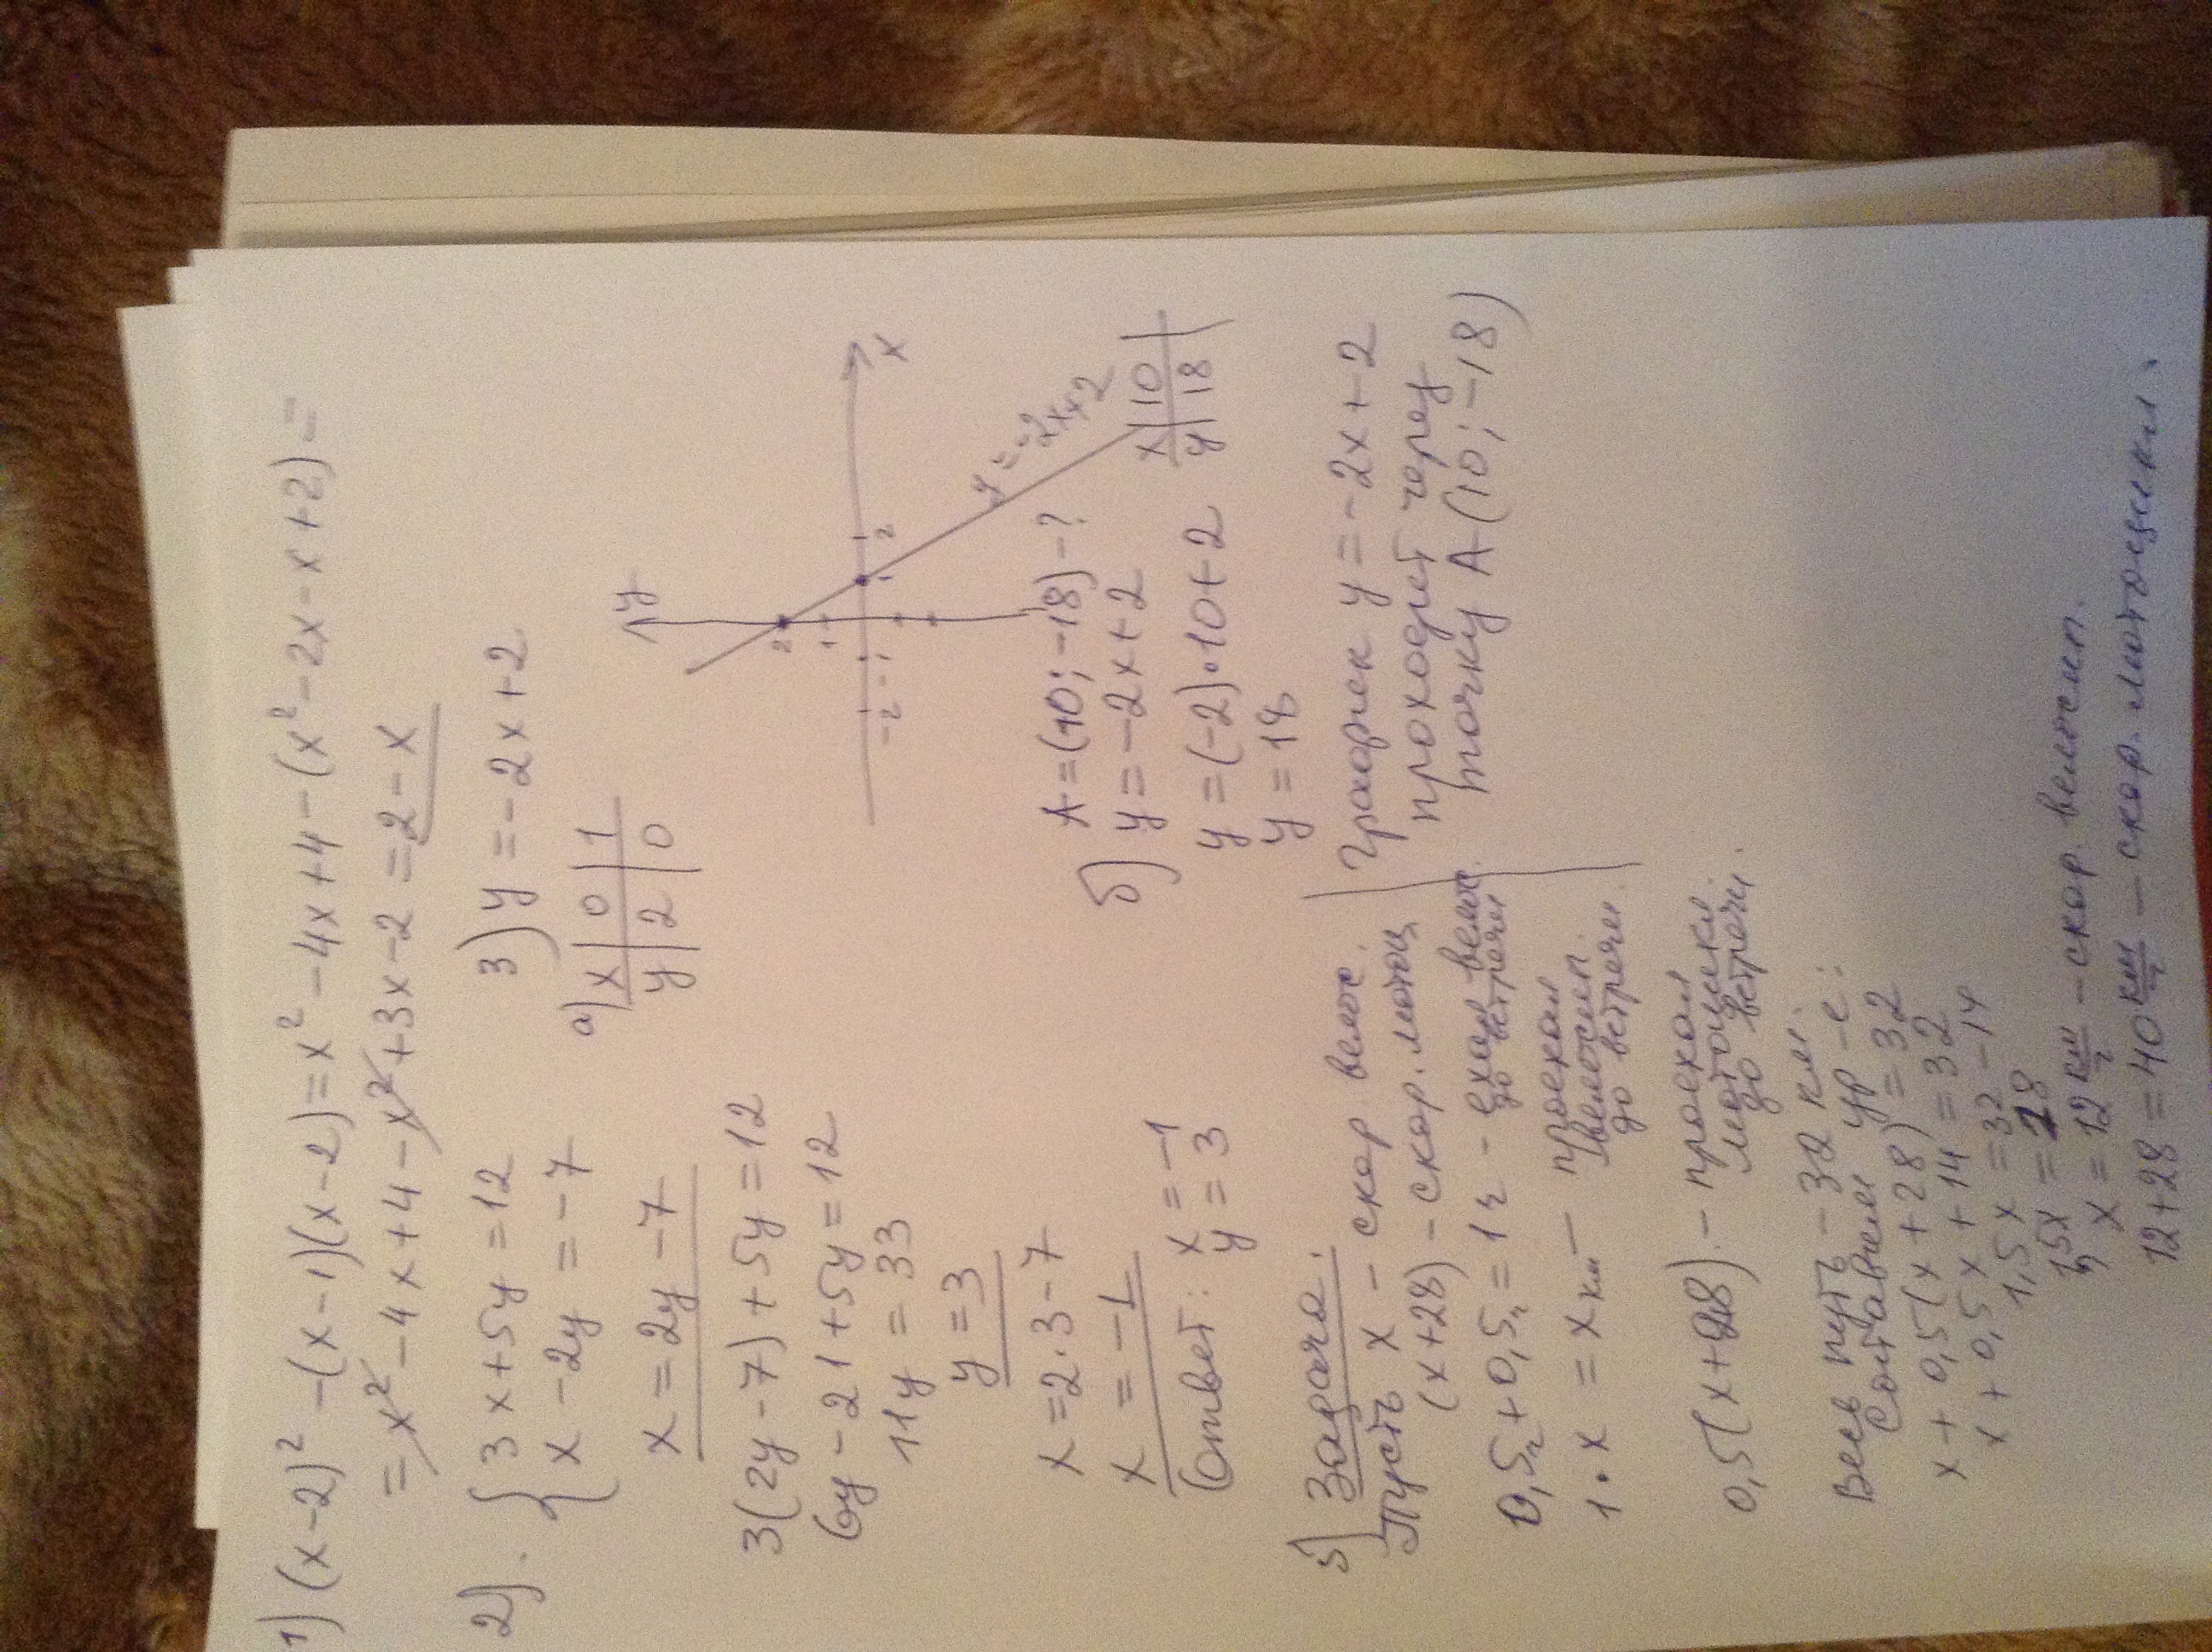 1) (x-2)² -(x-1)(x-2)=x² -4x+4-(x²-2x-x+2)=
=x²-4x+4-x²+3x-2=2-x
2). { 3x+5y=12
x-2y=-7
x=2y-7
3(2y-7)+5y=12
6y-21+5y=12
11y=33
y=3
x=2·3-7
x=-1
Ответ: x=-1
y=3
3) y=-2x+2
а) x | 0 | 1
y | 2 | 0
y
2
1
-2 -1 1 2
x
y=-2x+2
б) A=(10;-18)-?
y=-2x+2
y=(-2)·10+2
y=18
x | 10
y | 18
График y=-2x+2
проходит через
точку A(10;-18)
5) Задача:
Пусть x - скор велос.
(x+28) - скор. мотоц
0,5ч+0,5ч=1ч - ехал велос. до встречи
1·x=x км - проехал велосип. до встречи.
0,5(x+28).- проехал мотоцикл. до встречи.
Весь путь - 32 км.
Составляем ур-е:
x+0,5(x+28)=32
x+0,5x+14=32
1,5x=32-14
1,5x=18
x=12 км/ч - скор. велосип.
12+28=40 км/ч - скор. мотоцикл.